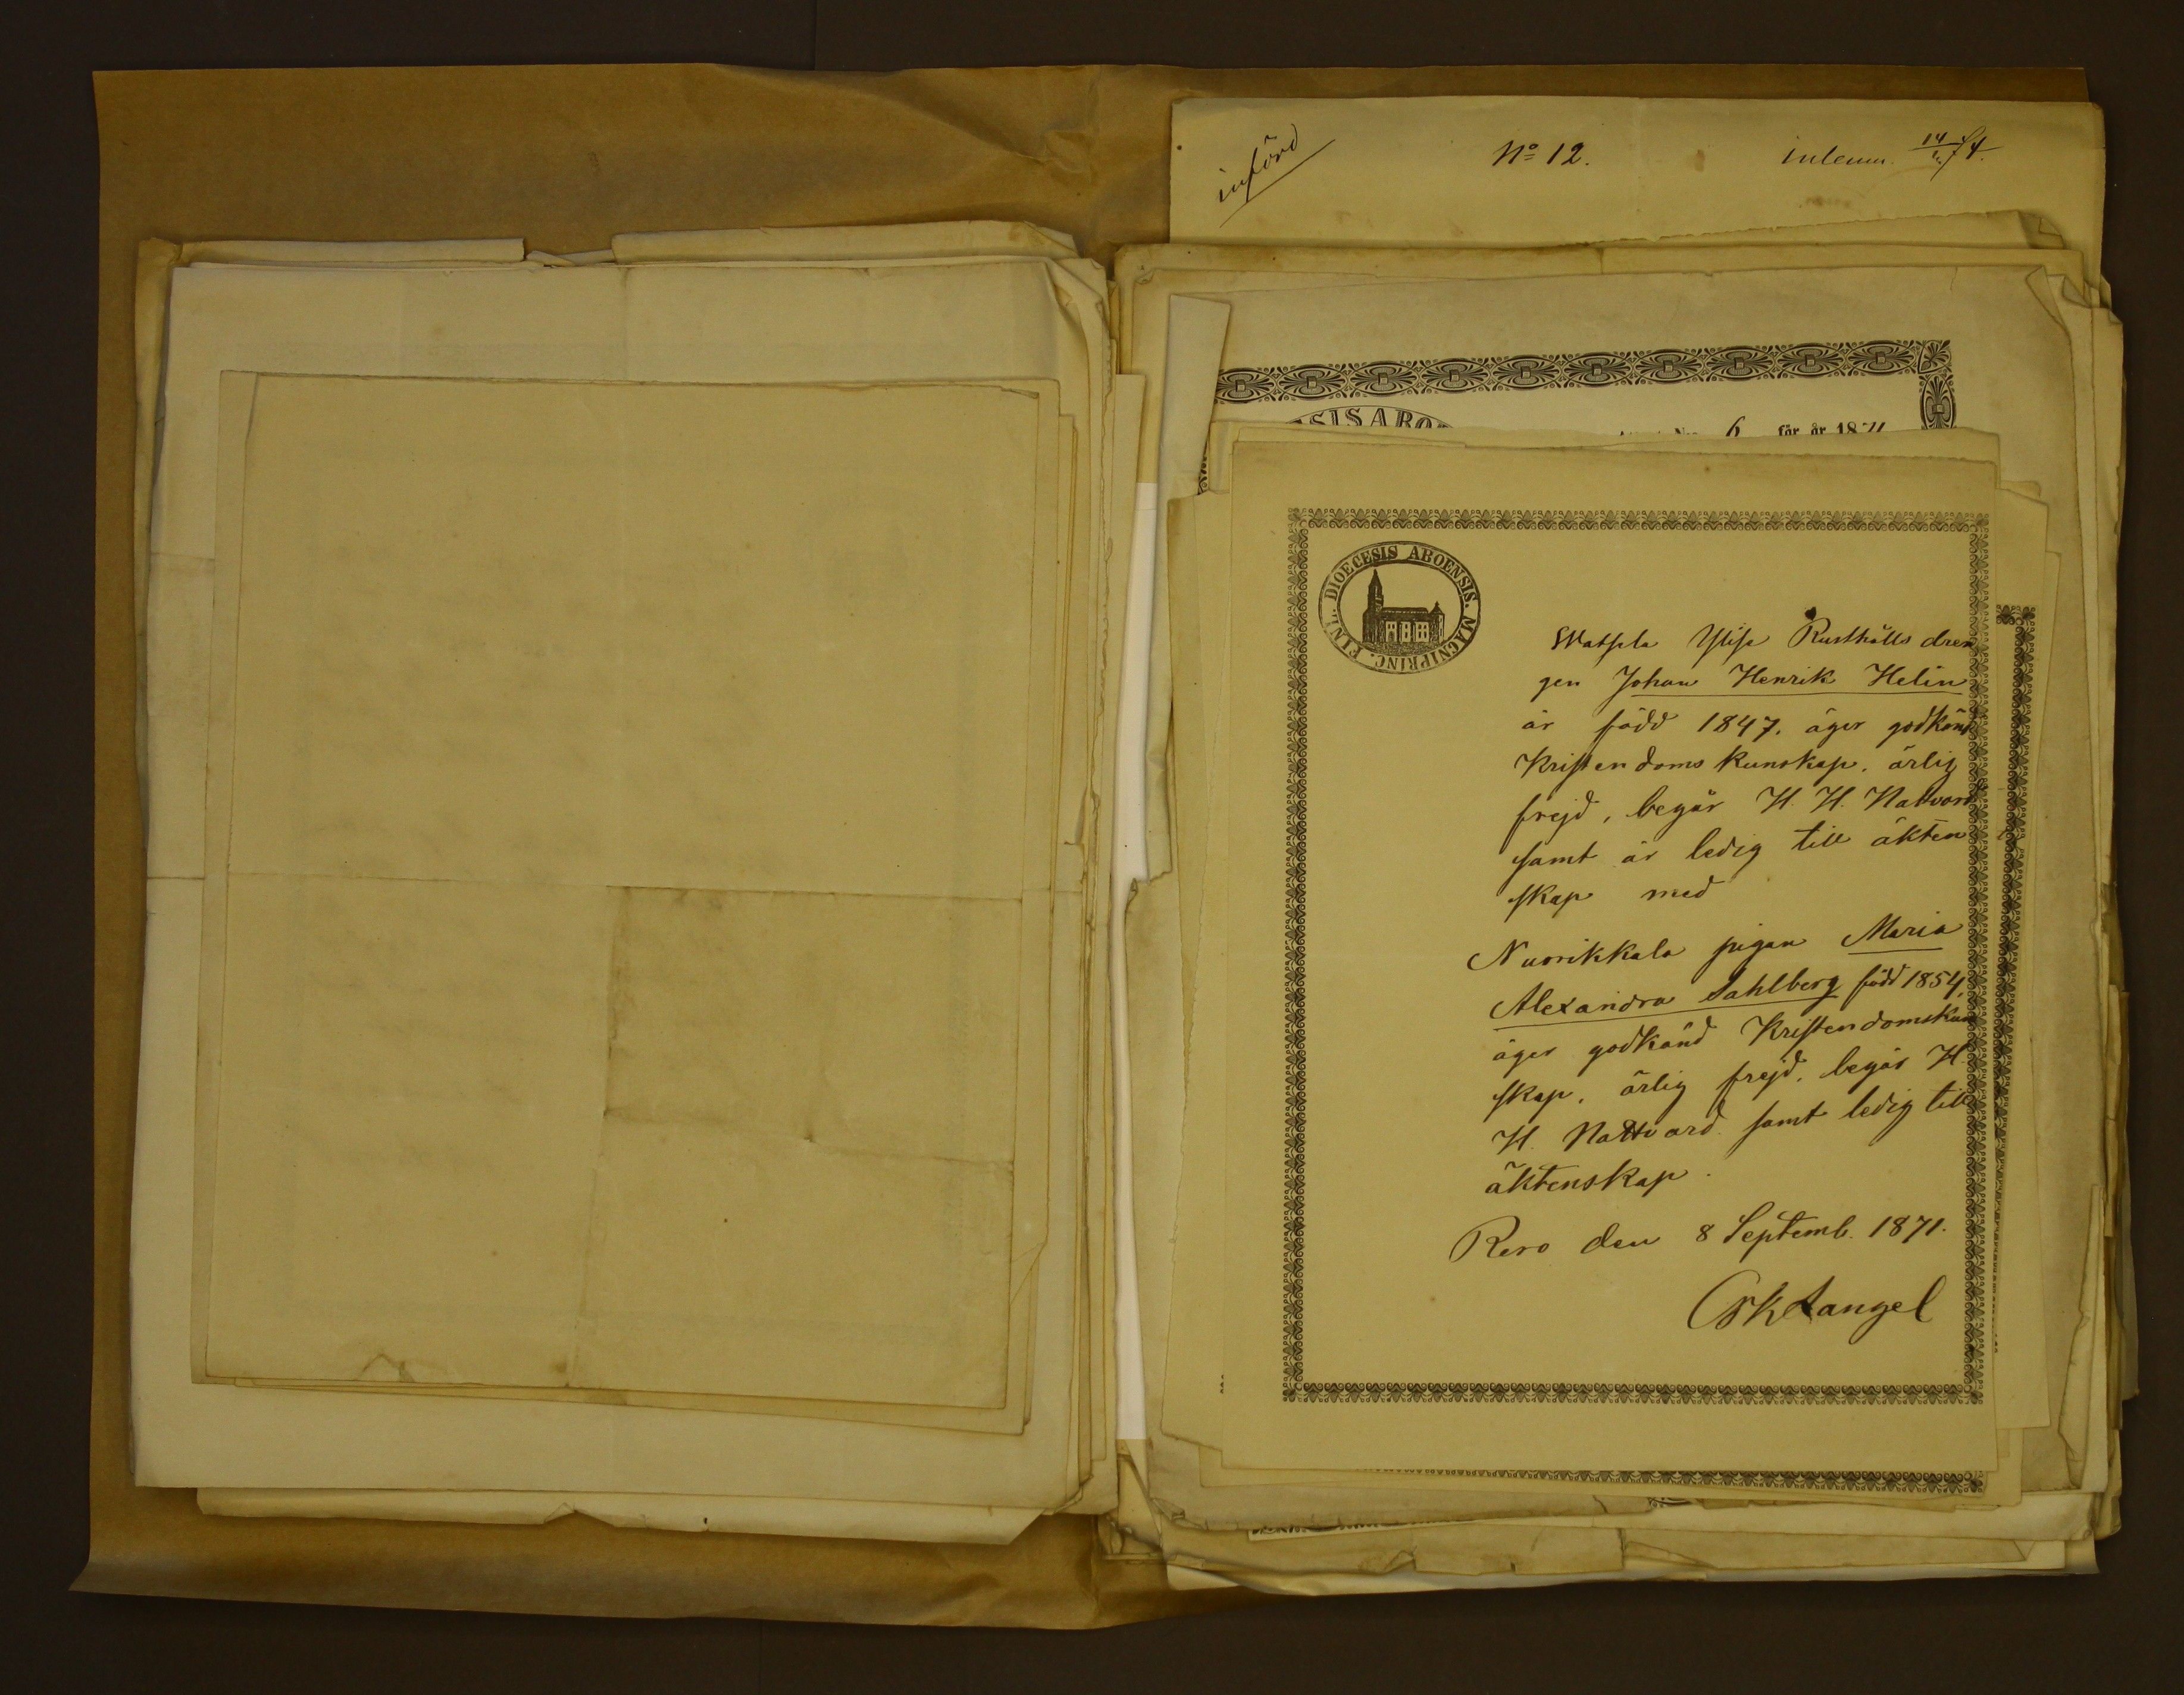 införd
No 12.
inlemn. 14/ 74.
SIS ABO
6 för år 1871
DIOECESIS ABOENSIS. MAGNIPRINC. FINL.
Watsela Ylise Rusthålls dren
gen Johan Henrik Helin
är född 1847. äger godkänd
Kristendoms kunskap. ärlig
frejd, begår H. H. Nattvard
samt är ledig till äkten
skap med
Nuorikkala pigan Maria
Alexandra Sahlberg född 1854,
äger godkänd Kristendomskun
skap, ärlig frejd, begår H.
H. Nattvard samt ledig till
äktenskap.
Reso den 8 Septemb. 1871.
Langel